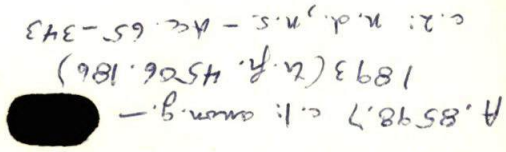 A.8598.7 c.1: anon.g.—
1893 (u.h. 4506.186)
c.2: n.d., n.s. – Acc. 65-343